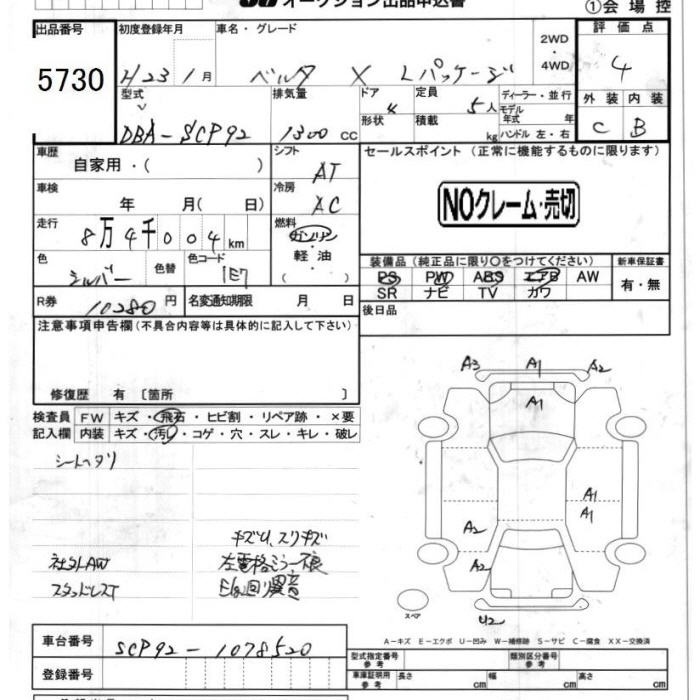 オークション出品申込書
①会場控
出品番号 初度登録年月 車名・グレード 2WD・4WD 評価点
5730 H23 1月 ベルタ X Lパッケージ 4
型式 排気量 ドア 定員 ディーラー・並行 外装 内装
DBA-SCP92 1300cc 4 5人 モデル年式 年 C B
形状 積載 kg ハンドル 左・右
車歴 シフト セールスポイント (正常に機能するものに限ります)
自家用・( ) AT
車検 冷房 NOクレーム・売切
年 月( 日) AC
走行 燃料
8万4千004km ガソリン・軽油( )
色 色替 色コード 装備品 (純正品に限り○をつけてください) 新車保証書
シルバー 1E7 PS PW ABS エアB AW 有・無
SR ナビ TV カワ
R券 10280円 名変通知期限 月 日 後日品
注意事項申告欄(不具合内容等は具体的に記入して下さい)
修復歴 有 〔箇所 〕
検査員 FW キズ・飛石・ヒビ割・リペア跡・×要
記入欄 内装 キズ・汚れ・コゲ・穴・スレ・キレ・破レ
シートヘタリ
キズU、スリキズ
社外AW 左電格ミラー不良
スタッドレスT E/g回り異音
A3 A1 A2
A1
A1
A1
A2
A2
U2
スペア
A-キズ E-エクボ U-凹み W-補修跡 S-サビ C-腐食 XX-交換済
車台番号 SCP92-1078520
型式指定番号 参考 類別区分番号 参考
登録番号 車庫証明用 参考 長さ cm 幅 cm 高さ cm